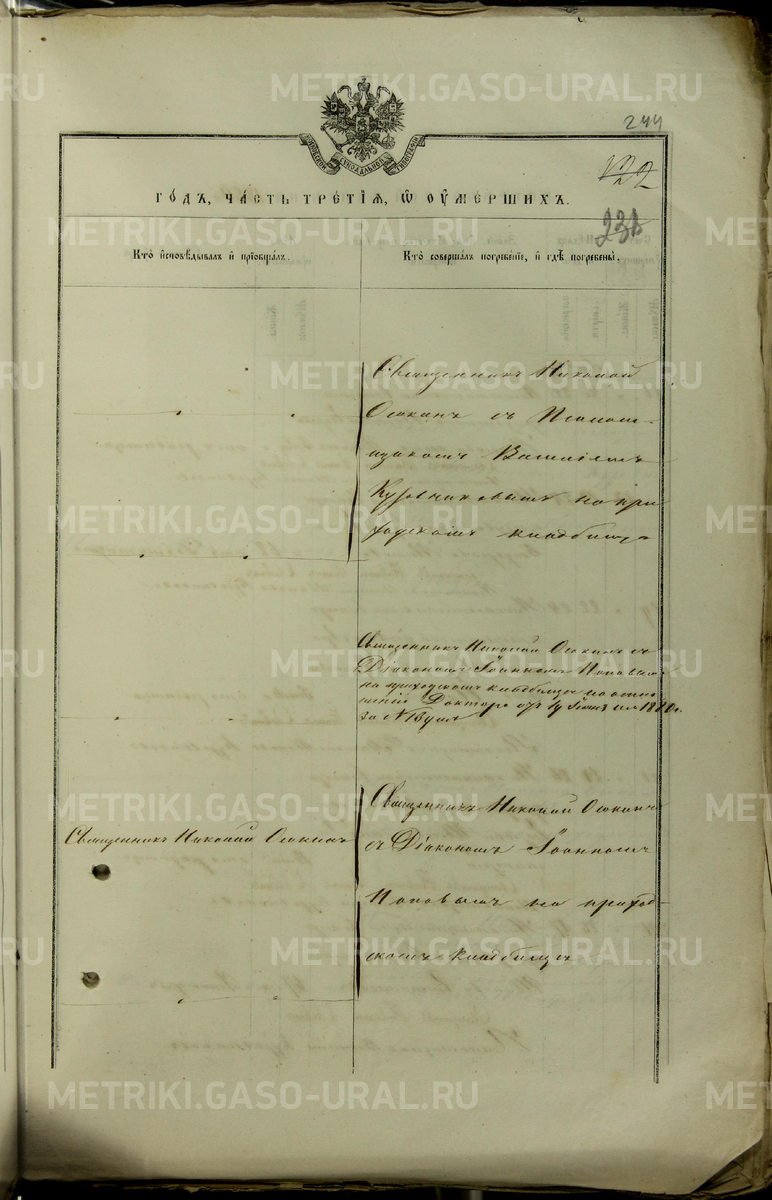 244
122
231
МОСКОВСКОЙ СѴНОДАЛЬНОЙ ТИПОГРАФІИ
ГОДЪ, ЧАСТЬ ТРЕТІЯ, Ѿ ОУМЕРШИХЪ.
Кто исповѣдывалъ и пріобщалъ.
Кто совершалъ погребеніе, и гдѣ погребены.
Священникъ Николай
Осокинъ съ Псалом-
щикомъ Василіемъ
на при-
ходскомъ кладбищѣ
Священникъ Николай Осокинъ съ
Діакономъ Іоанномъ Поповымъ
на приходскомъ кладбищѣ по отно-
шенію Доктора отъ 19
за №
Священникъ Николай Осокинъ
Священникъ Николай Осокинъ
съ Діакономъ Іоанномъ
Поповымъ на приход-
скомъ кладбищѣ
METRIKI.GASO-URAL.RU